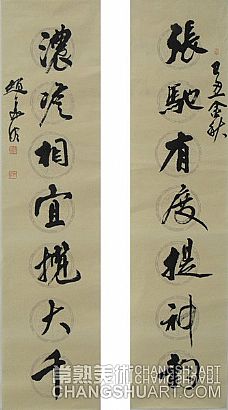 己丑金秋
張馳有度提神韵
濃淡相宜大千
趙
常熟美術
CHANGSHUART.COM